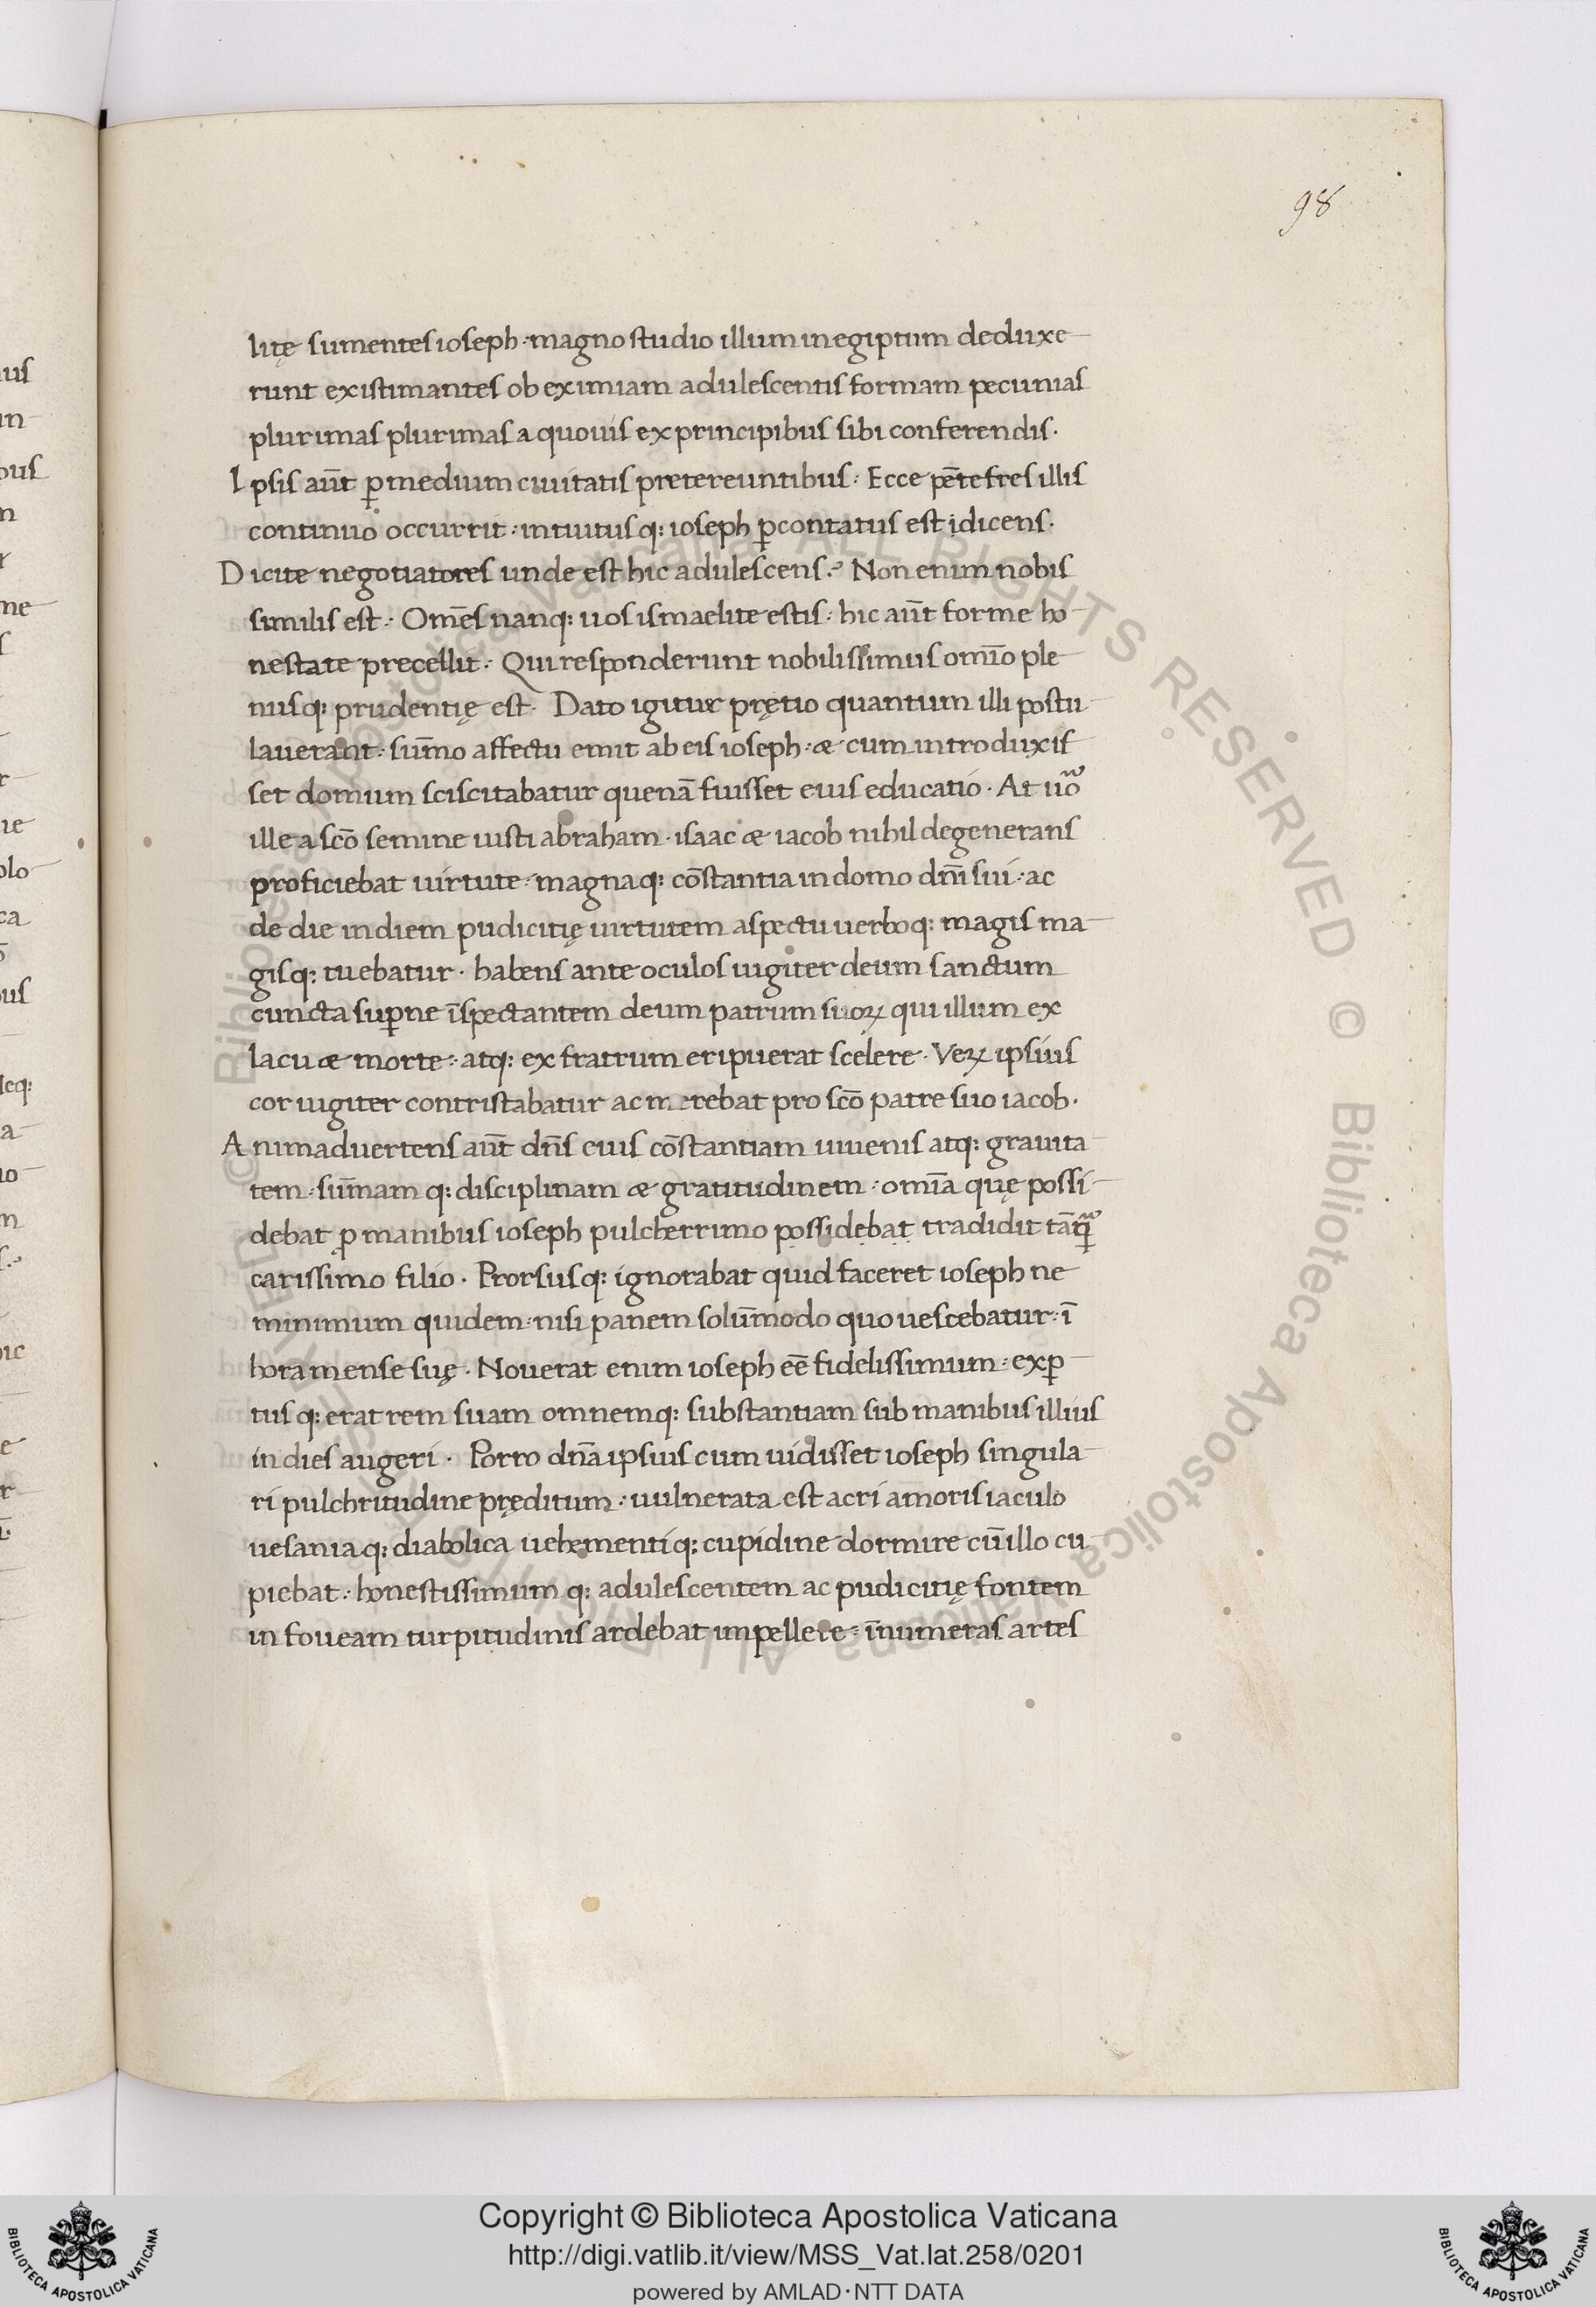 98
litę sumentes ioseph · magno studio illum in egiptum deduxe-
runt existimantes ob eximiam adulescentis formam pecunias
plurimas plurimas a quouis ex principibus sibi conferendis.
Ipsis aūt ꝑ medium ciuitatis pretereuntibus : Ecce pētefres illis
continuo occurrit : intuitusq: ioseph ꝑcontatus est idicens.
Dicite negotiatores unde est hic adulescens? Non enim nobis
similis est : Om̄es nanq: uos ismaelite estis : hic aūt forme ho-
nestate precellit : Qui responderunt nobilissimus om̄io ple-
nusq: prudentię est. Dato igitur prętio quantum illi postu-
lauerant : sum̄o affectu emit ab eis ioseph : æ cum introduxis
set domum sciscitabatur quenā fuisset eius educatio. At uō
ille a scō semine iusti abraham · isaac æ iacob nihil degenerans
proficiebat uirtute : magnaq: cōstantia in domo dn̄i sui : ac
de die in diem pudicitię uirtutem aspectu uerboq: magis ma-
gisq: tuebatur · habens ante oculos iugiter deum sanctum
cuncta suꝑne īspectantem deum patrum suoꝝ qui illum ex
lacu æ morte : atq: ex fratrum eripuerat scelere. Veꝝ ipsius
cor iugiter contristabatur ac merebat pro scō patre suo iacob.
Animaduertens aūt dn̄s eius cōstantiam iuuenis atq: grauita-
tem : sum̄am q: disciplinam æ gratitudinem : om̄ia quę possi-
debat ꝑ manibus ioseph pulcherrimo possidebat tradidit tāꝗ
carissimo filio. Prorsusq: ignorabat quid faceret ioseph ne
minimum quidem : nisi panem solūmodo quo uescebatur : ī
hora mense suę. Nouerat enim ioseph eē fidelissimum : exꝑ-
tus q: erat rem suam omnemq: substantiam sub manibus illius
in dies augeri. Porro dn̄a ipsius cum uidisset ioseph singula-
ri pulchritudine pręditum : uulnerata est acri amoris iaculo
uesaniaq: diabolica uehementiq: cupidine dormire cū illo cu-
piebat : honestissimum q: adulescentem ac pudicitię fontem
in foueam turpitudinis ardebat impellere : īnumeras artes
Copyright © Biblioteca Apostolica Vaticana
http://digi.vatlib.it/view/MSS_Vat.lat.258/0201
powered by AMLAD · NTT DATA